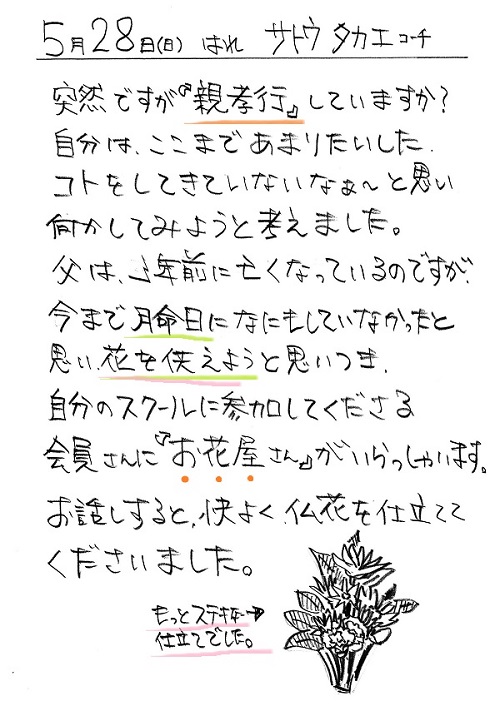 5月28日(日) はれ サトウタカエコーチ
突然ですが『親孝行』していますか?
自分は、ここまであまりたいした
コトをしてきていないなぁ〜と思い
何かしてみようと考えました。
父は、年前に亡くなっているのですが、
今まで月命日になにもしていなかったと
思い花を供えようと思いつき、
自分のスクールに参加してくださる
会員さんに『お花屋さん』がいらっしゃいます。
お話しすると、快よく仏花を仕立てて
くださいました。
もっとステキな→
仕立てでした。